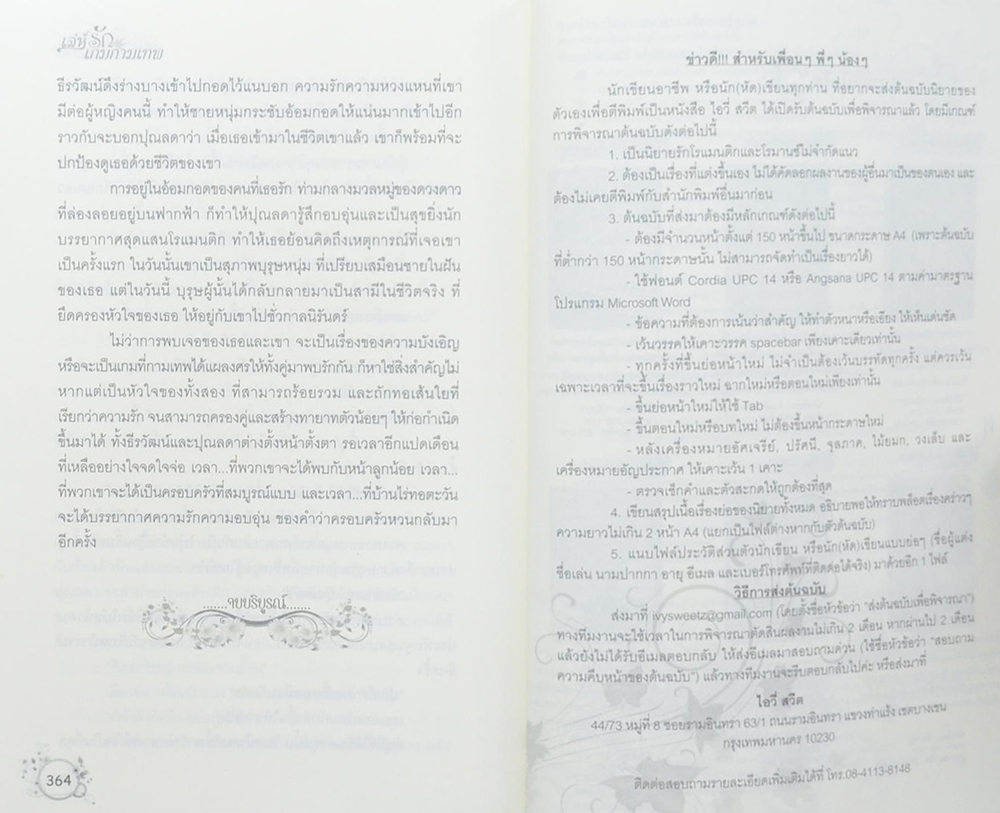 เล่ห์รัก
เกมกามเทพ
ธีรวัฒน์ดึงร่างบางเข้าไปกอดไว้แนบอก ความรักความหวงแหนที่เขา
มีต่อผู้หญิงคนนี้ ทำให้ชายหนุ่มกระชับอ้อมกอดให้แน่นมากเข้าไปอีก
ราวกับจะบอกปุณลดาว่า เมื่อเธอเข้ามาในชีวิตเขาแล้ว เขาก็พร้อมที่จะ
ปกป้องดูเธอด้วยชีวิตของเขา
การอยู่ในอ้อมกอดของคนที่เธอรัก ท่ามกลางมวลหมู่ของดวงดาว
ที่ล่องลอยอยู่บนฟากฟ้า ก็ทำให้ปุณลดารู้สึกอบอุ่นและเป็นสุขยิ่งนัก
บรรยากาศสุดแสนโรแมนติก ทำให้เธอย้อนคิดถึงเหตุการณ์ที่เจอเขา
เป็นครั้งแรก ในวันนั้นเขาเป็นสุภาพบุรุษหนุ่ม ที่เปรียบเสมือนชายในฝัน
ของเธอ แต่ในวันนี้ บุรุษผู้นั้นได้กลับกลายมาเป็นสามีในชีวิตจริง ที่
ยึดครองหัวใจของเธอ ให้อยู่กับเขาไปชั่วกาลนิรันดร์
ไม่ว่าการพบเจอของเธอและเขา จะเป็นเรื่องของความบังเอิญ
หรือจะเป็นเกมที่กามเทพได้แผลงศรให้ทั้งคู่มาพบรักกัน ก็หาใช่สิ่งสำคัญไม่
หากแต่เป็นหัวใจของทั้งสอง ที่สามารถร้อยรวม และถักทอเส้นใยที่
เรียกว่าความรัก จนสามารถครองคู่และสร้างทายาทตัวน้อยๆ ให้ก่อกำเนิด
ขึ้นมาได้ ทั้งธีรวัฒน์และปุณลดาต่างตั้งหน้าตั้งตา รอเวลาอีกแปดเดือน
ที่เหลืออย่างใจจดใจจ่อ เวลา...ที่พวกเขาจะได้พบกับหน้าลูกน้อย เวลา...
ที่พวกเขาจะได้เป็นครอบครัวที่สมบูรณ์แบบ และเวลา...ที่บ้านไร่ทอตะวัน
จะได้บรรยากาศความรักความอบอุ่น ของคำว่าครอบครัวหวนกลับมา
อีกครั้ง
.......จบบริบูรณ์.......
364
ข่าวดี!!! สำหรับเพื่อนๆ พี่ๆ น้องๆ
นักเขียนอาชีพ หรือนัก(หัด)เขียนทุกท่าน ที่อยากจะส่งต้นฉบับนิยายของ
ตัวเองเพื่อตีพิมพ์เป็นหนังสือ ไอวี่ สวีต ได้เปิดรับต้นฉบับเพื่อพิจารณาแล้ว โดยมีเกณฑ์
การพิจารณาต้นฉบับดังต่อไปนี้
1. เป็นนิยายรักโรแมนติกและโรมานซ์ไม่จำกัดแนว
2. ต้องเป็นเรื่องที่แต่งขึ้นเอง ไม่ได้คัดลอกผลงานของผู้อื่นมาเป็นของตนเอง และ
ต้องไม่เคยตีพิมพ์กับสำนักพิมพ์อื่นมาก่อน
3. ต้นฉบับที่ส่งมาต้องมีหลักเกณฑ์ดังต่อไปนี้
- ต้องมีจำนวนหน้าตั้งแต่ 150 หน้าขึ้นไป ขนาดกระดาษ A4 (เพราะต้นฉบับ
ที่ต่ำกว่า 150 หน้ากระดาษนั้น ไม่สามารถจัดทำเป็นเรื่องยาวได้)
- ใช้ฟอนต์ Cordia UPC 14 หรือ Angsana UPC 14 ตามค่ามาตรฐาน
โปรแกรม Microsoft Word
- ข้อความที่ต้องการเน้นว่าสำคัญ ให้ทำตัวหนาหรือเอียง ให้เห็นเด่นชัด
- เว้นวรรคให้เคาะวรรค spacebar เพียงเคาะเดียวเท่านั้น
- ทุกครั้งที่ขึ้นย่อหน้าใหม่ ไม่จำเป็นต้องเว้นบรรทัดทุกครั้ง แต่ควรเว้น
เฉพาะเวลาที่จะขึ้นเรื่องราวใหม่ ฉากใหม่หรือตอนใหม่เพียงเท่านั้น
- ขึ้นย่อหน้าใหม่ให้ใช้ Tab
- ขึ้นตอนใหม่หรือบทใหม่ ไม่ต้องขึ้นหน้ากระดาษใหม่
- หลังเครื่องหมายอัศเจรีย์, ปรัศนี, จุลภาค, ไม้ยมก, วงเล็บ และ
เครื่องหมายอัญประกาศ ให้เคาะเว้น 1 เคาะ
- ตรวจเช็กคำและตัวสะกดให้ถูกต้องที่สุด
4. เขียนสรุปเนื้อเรื่องย่อของนิยายทั้งหมด อธิบายพอให้ทราบพล็อตเรื่องคร่าวๆ
ความยาวไม่เกิน 2 หน้า A4 (แยกเป็นไฟล์ต่างหากกับตัวต้นฉบับ)
5. แนบไฟล์ประวัติส่วนตัวนักเขียน หรือนัก(หัด)เขียนแบบย่อๆ (ชื่อผู้แต่ง
ชื่อเล่น นามปากกา อายุ อีเมล และเบอร์โทรศัพท์ที่ติดต่อได้จริง) มาด้วยอีก 1 ไฟล์
วิธีการส่งต้นฉบับ
ส่งมาที่ ivysweetz@gmail.com (โดยตั้งชื่อหัวข้อว่า "ส่งต้นฉบับเพื่อพิจารณา")
ทางทีมงานจะใช้เวลาในการพิจารณาตัดสินผลงานไม่เกิน 2 เดือน หากผ่านไป 2 เดือน
แล้วยังไม่ได้รับอีเมลตอบกลับ ให้ส่งอีเมลมาสอบถามด่วน (ใช้ชื่อหัวข้อว่า "สอบถาม
ความคืบหน้าของต้นฉบับ") แล้วทางทีมงานจะรีบตอบกลับไปค่ะ หรือส่งมาที่
ไอวี่ สวีต
44/73 หมู่ที่ 8 ซอยรามอินทรา 63/1 ถนนรามอินทรา แขวงท่าแร้ง เขตบางเขน
กรุงเทพมหานคร 10230
ติดต่อสอบถามรายละเอียดเพิ่มเติมได้ที่ โทร.08-4113-8148